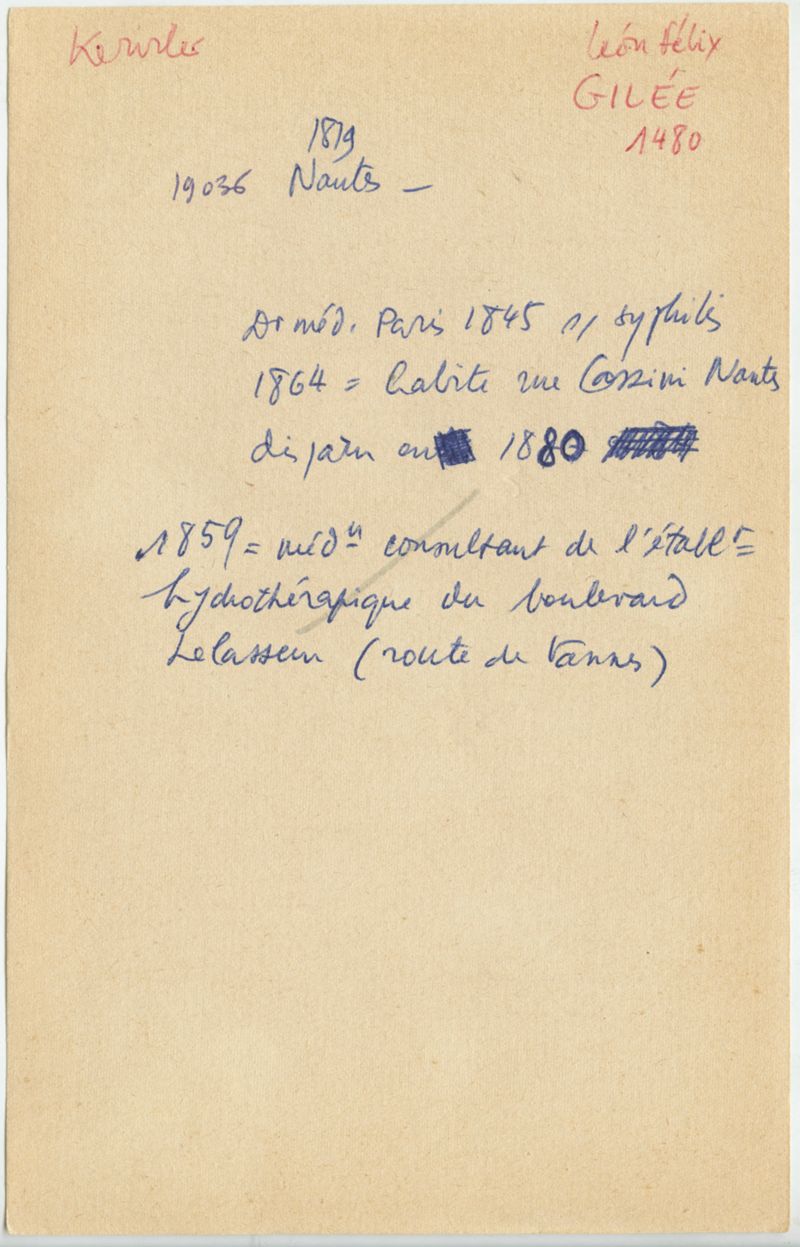 Kerviler
León Félix
GILÉE
1480
1819
19036 Nantes –
Dr méd. Paris 1845 s/ syphilis
1864 = habite rue Cassini Nantes
disparu en 1880
1859 = médn consultant de l'établt =
hydrothérapique du boulevard
Lelasseur (route de Vannes)